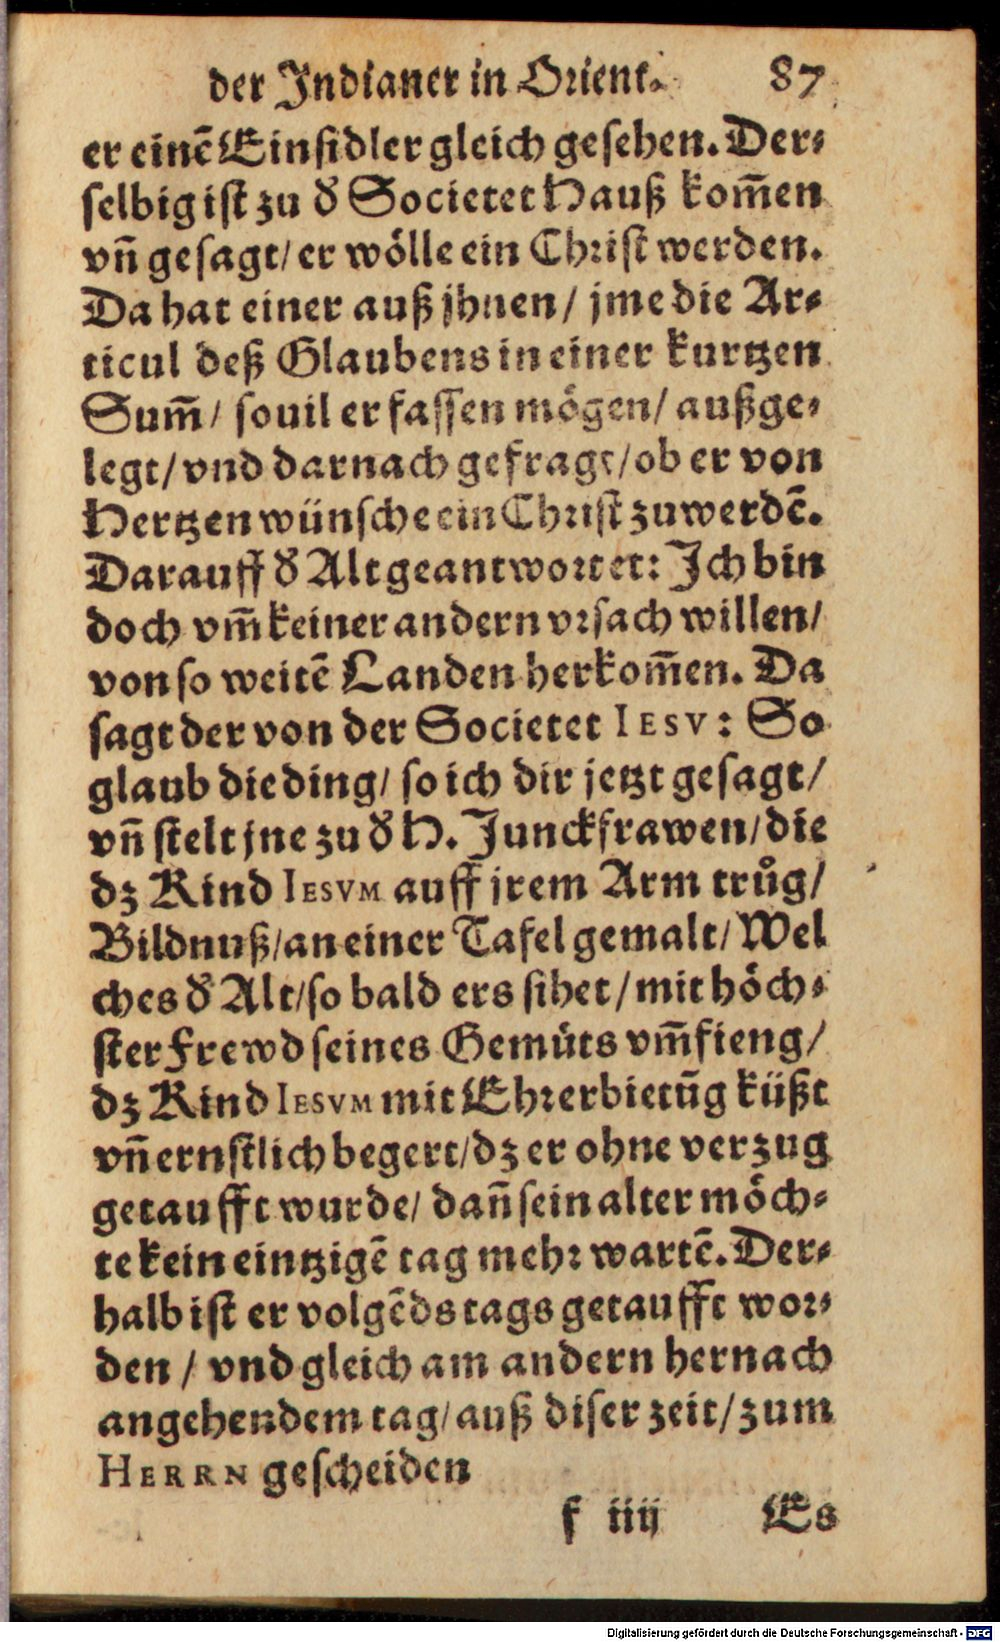 der Indianer in Orient. 87
er einē Einsidler gleich gesehen. Der-
selbig ist zu d̕ Societet Hauß kom̃en
vñ gesagt/ er wölle ein Christ werden.
Da hat einer auß jhnen/ jme die Ar-
ticul deß Glaubens in einer kurtzen
Sum̃/ souil er fassen mögen/ außge-
legt/ vnd darnach gefragt/ ob er von
Hertzen wünsche ein Christ zuwerdē.
Darauff d̕ Alt geantwortet: Ich bin
doch vm̃ keiner andern vrsach willen/
von so weitē Landen herkom̃en. Da
sagt der von der Societet IESV: So
glaub die ding/ so ich dir jetzt gesagt/
vñ stelt jne zu d̕ H. Junckfrawen/ die
dz Kind IESVM auff jrem Arm trůg/
Bildnuß/ an einer Tafel gemalt/ Wel
ches d̕ Alt/ so bald ers sihet/ mit höch-
ster Frewd seines Gemüts vm̃fieng/
dz Kind IESVM mit Ehrerbietūg küßt
vñ ernstlich begert/ dz er ohne verzug
getaufft wurde/ dañ sein alter möch-
te kein eintzigē tag mehr wartē. Der-
halb ist er volgēds tags getaufft wor-
den/ vnd gleich am andern hernach
angehendem tag/ auß diser zeit/ zum
HERRN gescheiden
f iiij Es
Digitalisierung gefördert durch die Deutsche Forschungsgemeinschaft - DFG